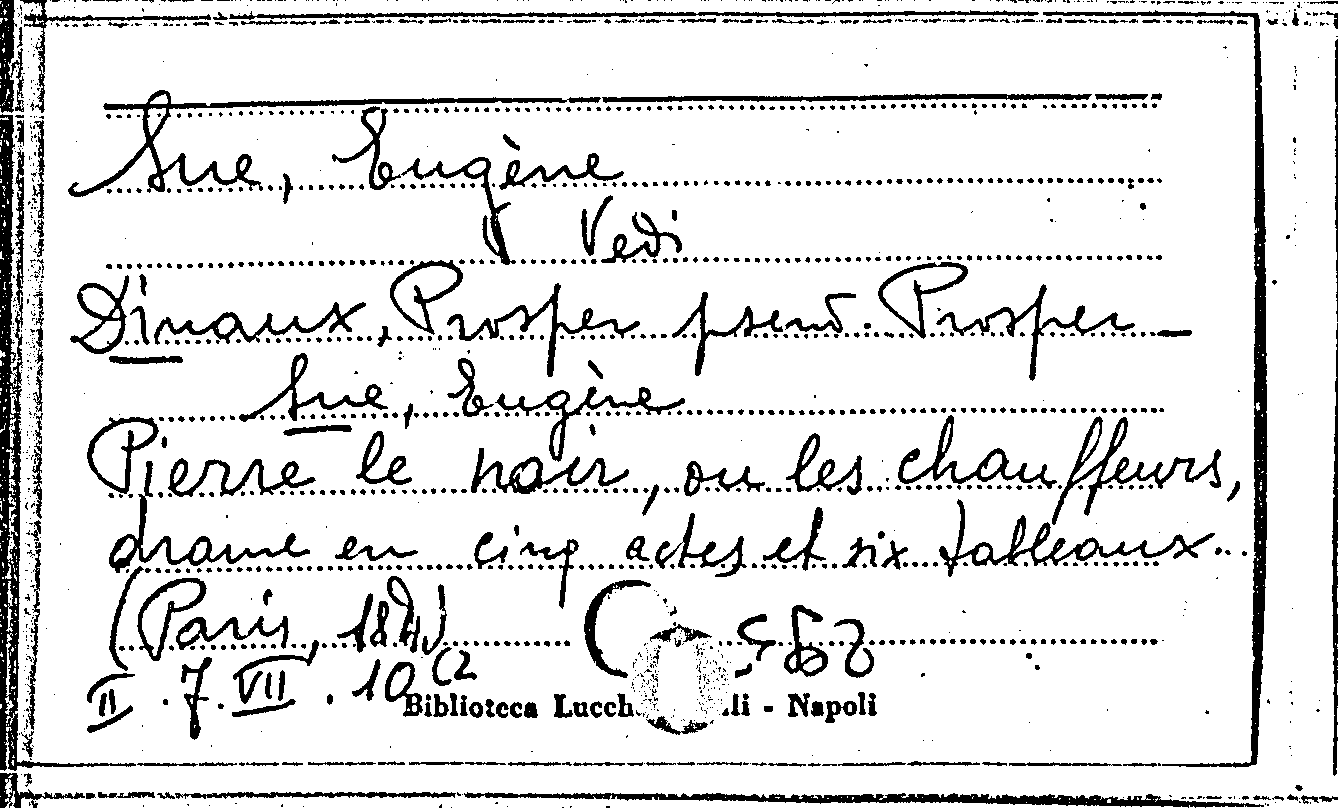 Sue, Eugène
Vedi
Dinaux, Prosper pseud. Prosper –
Sue, Eugène
Pierre le noir, ou les chauffeurs,
drame en cinq actes et six tableaux..
(Paris,
II . 7. VII . 10 (2
Biblioteca - Napoli